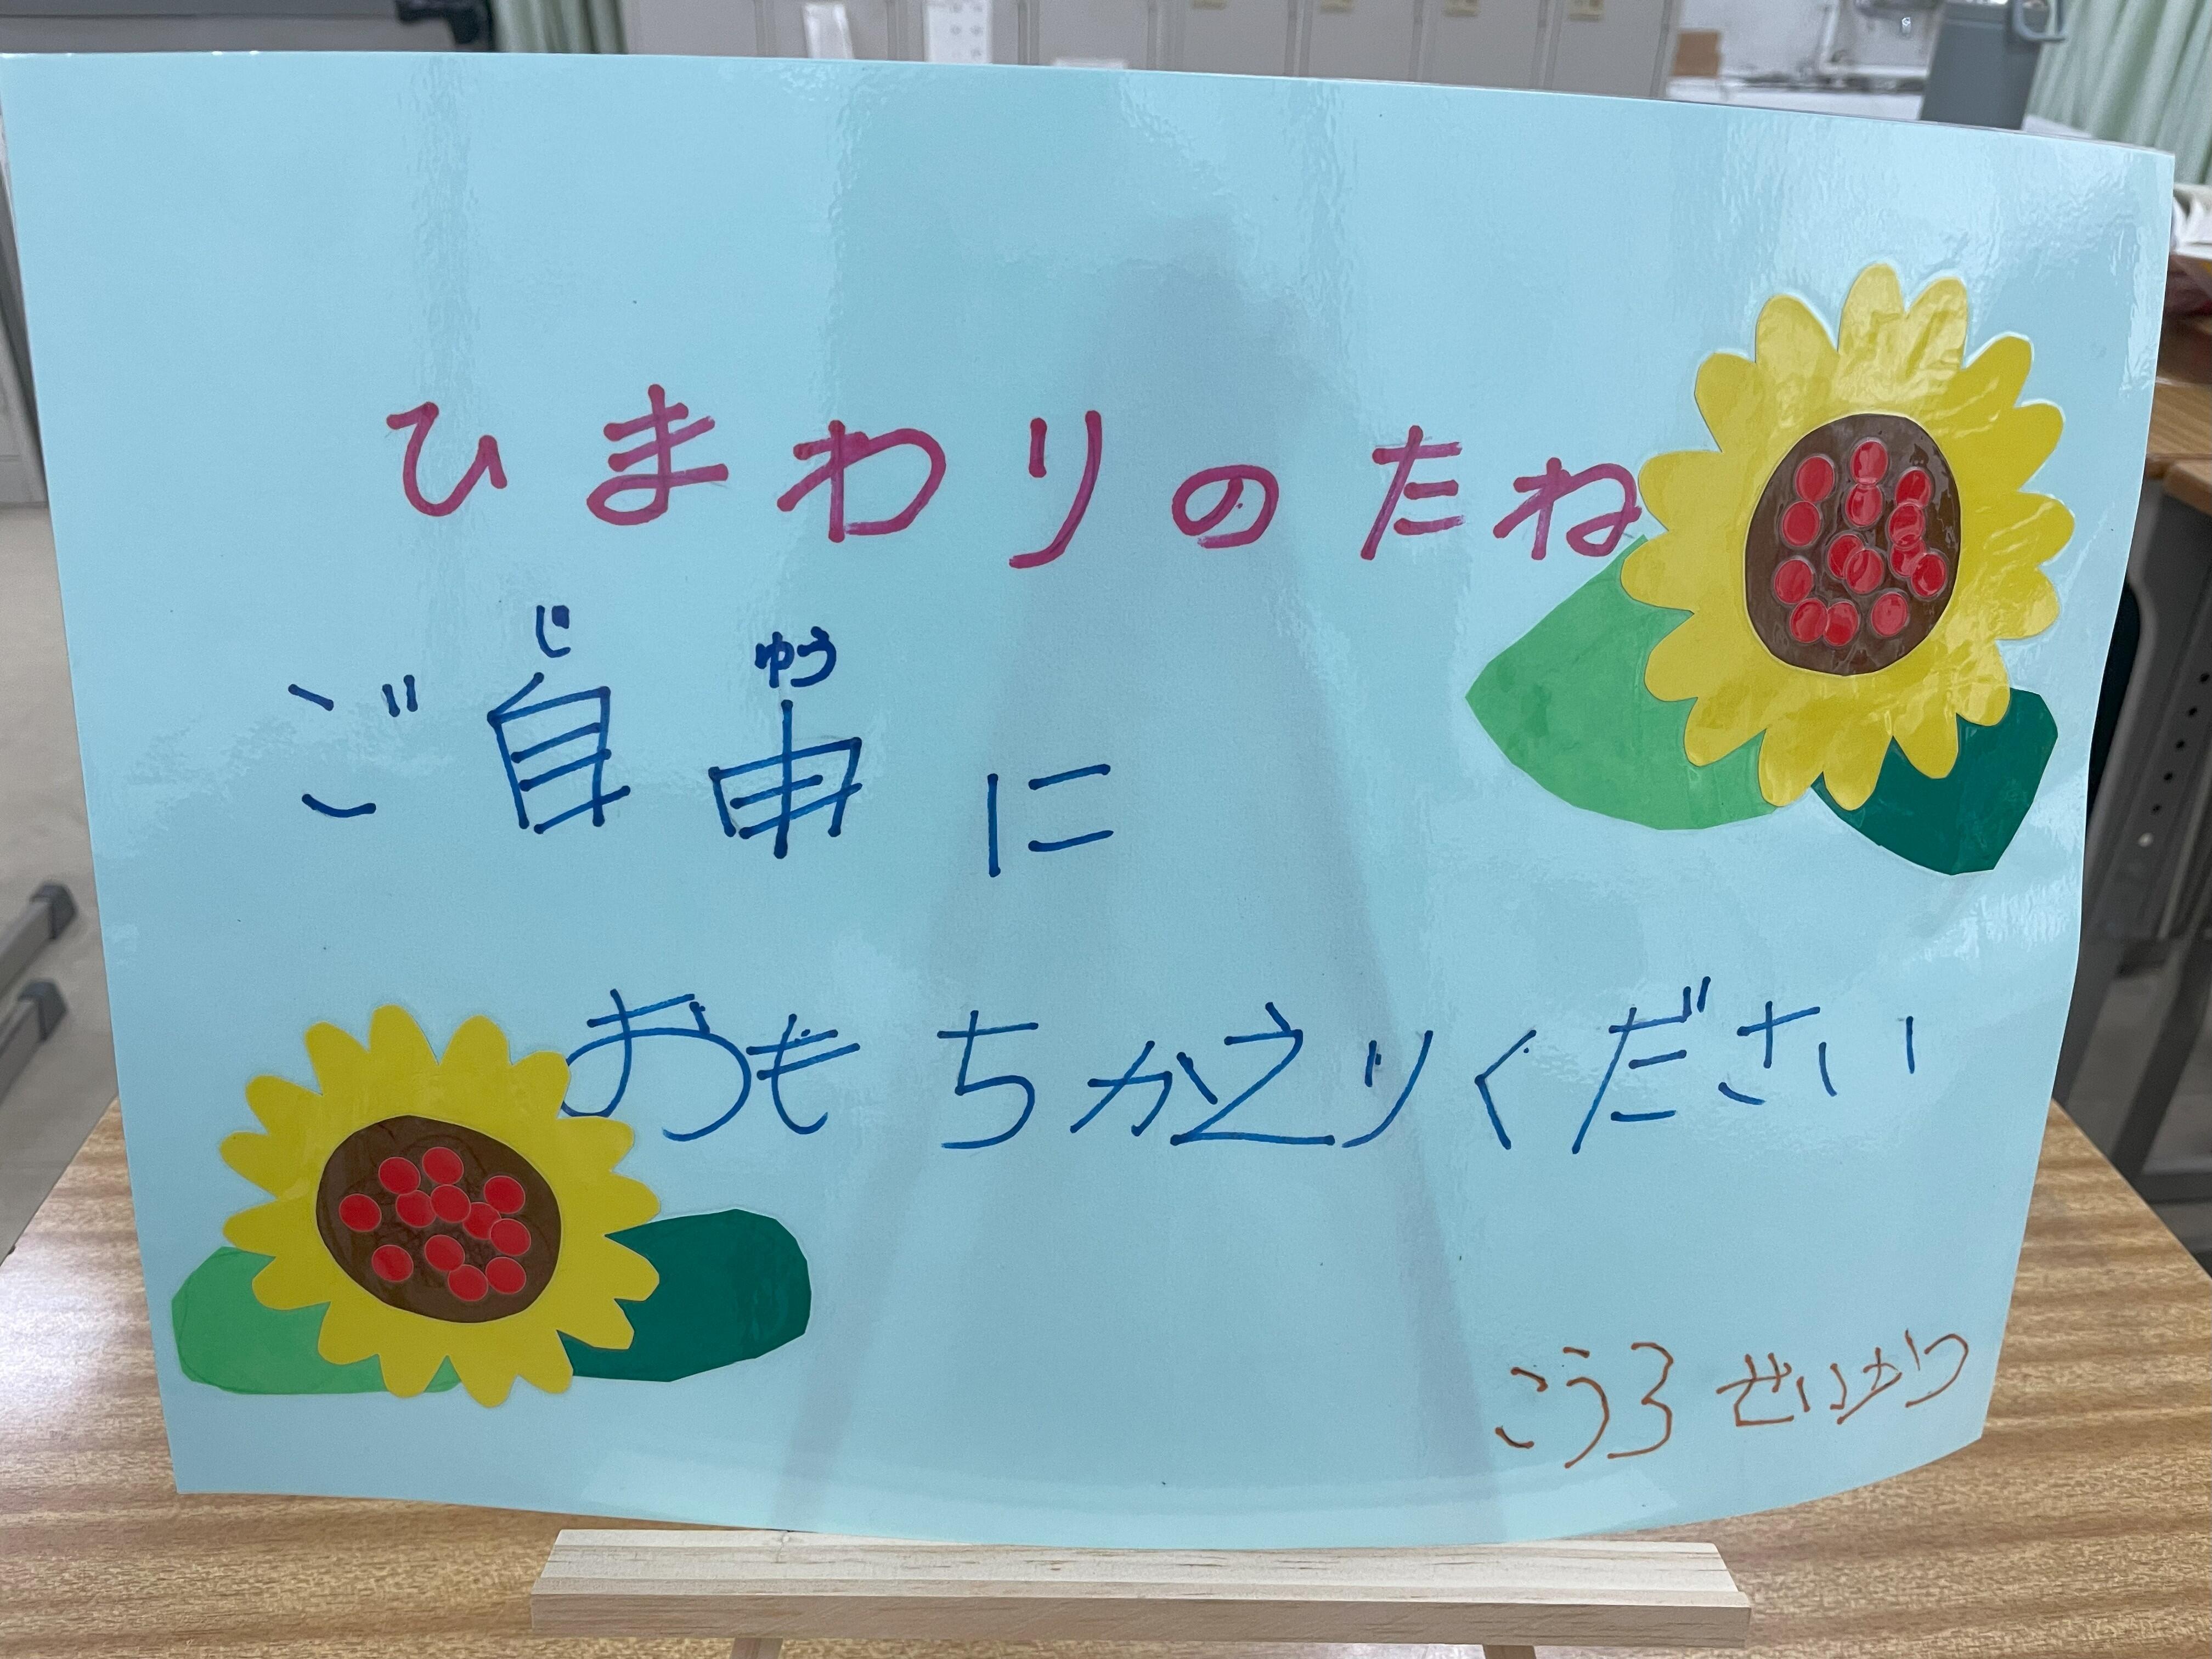 ひまわりのたね
じ ゆう
ご自由に
おもちかえりください
こうろ